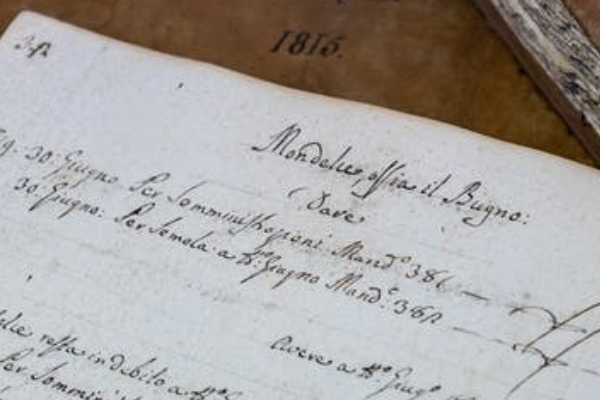 1815.
Mondelce, ossia il Bugno:
Dare
30: Giugno Per Somministrazioni Mand.º 386
30. Giugno: Per Semola a tt.º Giugno Mand.º 382
Avere a tt.º Giug.º
resta in debito a tt.º
Per Sommini